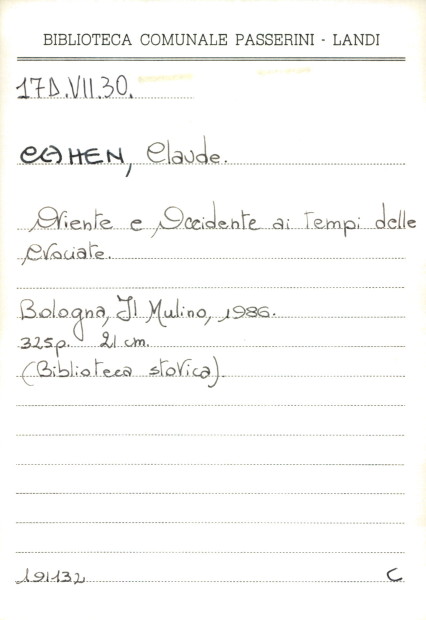 BIBLIOTECA COMUNALE PASSERINI - LANDI
17D.VII.30.
CAHEN, Claude.
Oriente e Occidente ai Tempi delle
Crociate.
Bologna, Il Mulino, 1986.
325p. 21 cm.
(Biblioteca storica).
191132 C